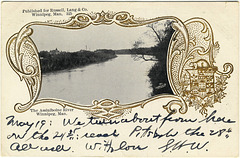 Published for Russell, Lang & Co.
Winnipeg, Man.
The Assiniboine River
Winnipeg, Man.
May 18: We turn about from here
on the 21st. reach Pitsbgh the 28th
All well.